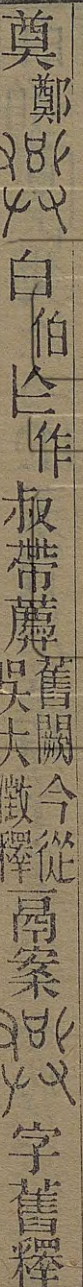 奠鄭白伯乍作叔帶薦舊闕今從吳大澂釋鬲案字舊釋